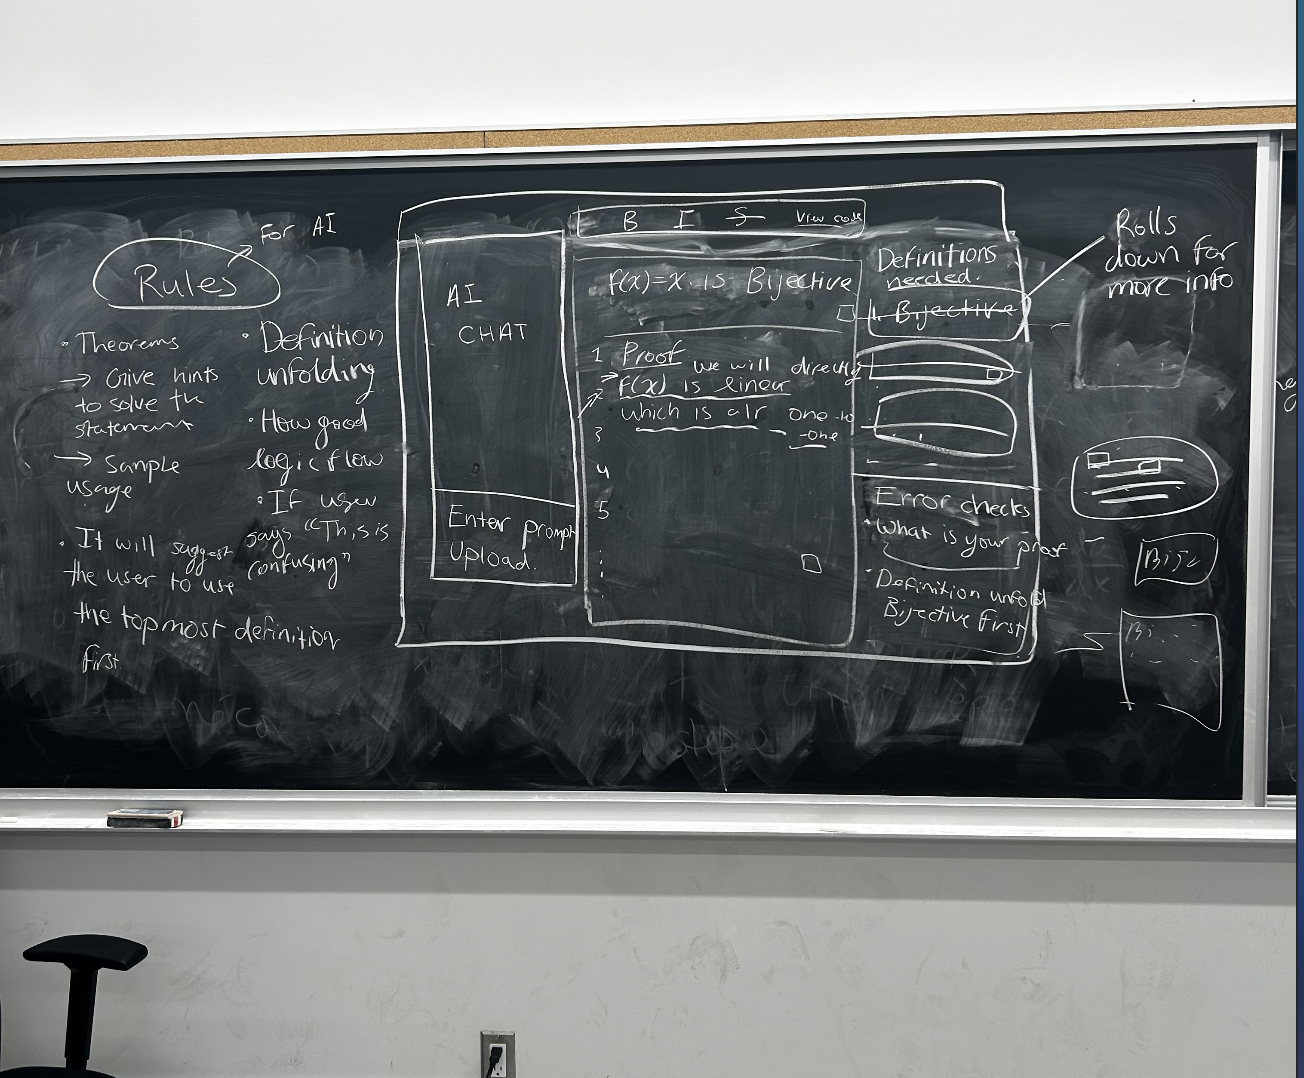 For AI
Rules
• Theorems
→ Give hints
to solve the
statement
→ Sample
usage
• It will suggest
the user to use
the topmost definition
first
• Definition
unfolding
• How good
logic flow
• If user
says "This is
confusing"
B I S View code
AI
CHAT
Enter prompt
Upload.
f(x)=x is Bijective
1 Proof we will directly
→ f(x) is linear
2 which is alr one-to
-one
3
4
5
Definitions
needed.
1. Bijective
Error checks
• What is your proof
• Definition unfold
Bijective first
Rolls
down for
more info
Bij
Bi...